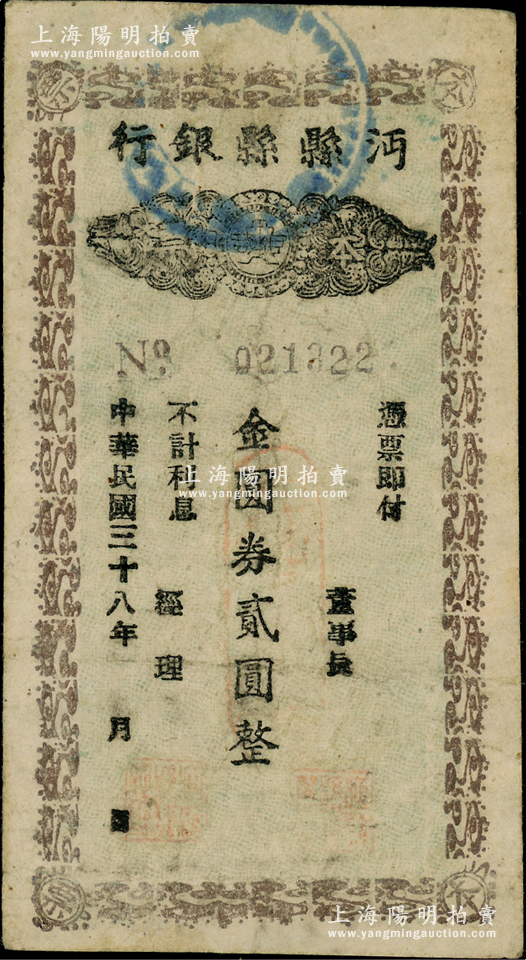 上海陽明拍賣
www.yangmingauction.com
沔縣縣銀行
本
No 021322
憑票即付
董事長
金圓券貳圓整
不計利息
經理
中華民國三十八年 月
上海陽明拍賣
www.yangmingauction.com
上海陽明拍賣
www.yangmingauction.com